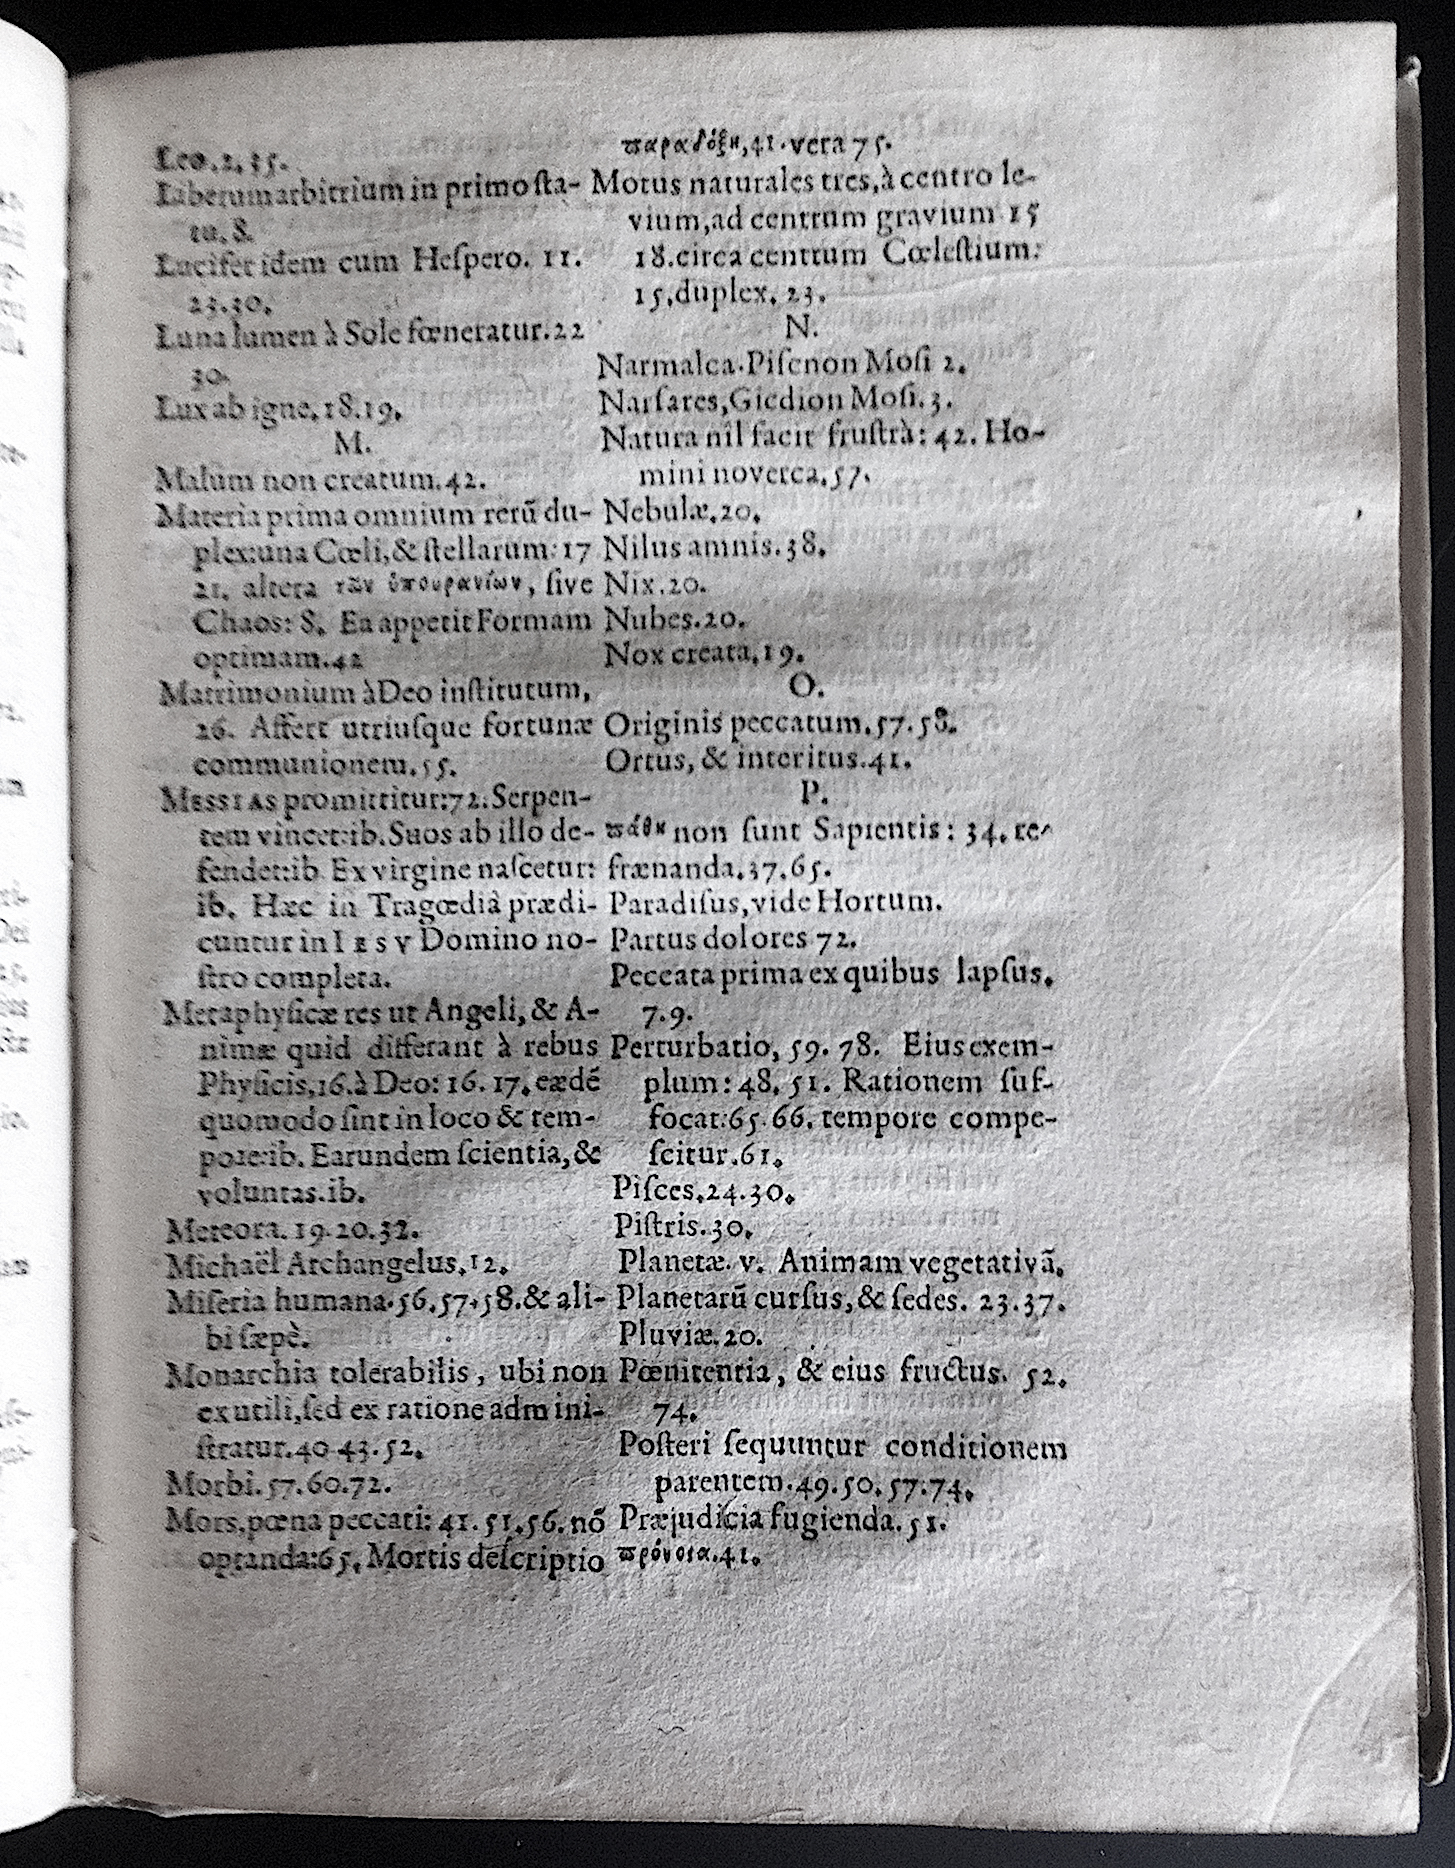 Leo.2.35.
Liberum arbitrium in primo ſta-
tu.8.
Lucifer idem cum Heſpero. 11.
23.30.
Luna lumen à Sole fœneratur.22
30.
Lux ab igne.18.19.
M.
Malum non creatum.42.
Materia prima omnium rerũ du-
plex:una Cœli,& ſtellarum: 17
21. altera τῶν ὑπουρανίων, ſive
Chaos: 8. Ea appetit Formam
optimam.42
Matrimonium à Deo inſtitutum,
26. Affert utriuſque fortunæ
communionem.55.
MESSIAS promittitur:72.Serpen-
tem vincet:ib.Suos ab illo de-
fendet:ib Ex virgine naſcetur:
ib. Hæc in Tragœdiâ prædi-
cuntur in IESV Domino no-
ſtro completa.
Metaphyſicæ res ut Angeli, & A-
nimæ quid differant à rebus
Phyſicis,16.à Deo: 16. 17. eædẽ
quomodo ſint in loco & tem-
pore:ib. Earundem ſcientia,&
voluntas.ib.
Meteora. 19.20.32.
Michaël Archangelus.12.
Miſeria humana.56.57.58.& ali-
bi ſæpè.
Monarchia tolerabilis, ubi non
ex utili,ſed ex ratione admini-
ſtratur.40 43.52.
Morbi.57.60.72.
Mors,pœna peccati: 41.51.56. nõ
optanda:65. Mortis deſcriptio
παραδόξη,41.vera 75.
Motus naturales tres,à centro le-
vium,ad centrum gravium 15
18.circa centrum Cœleſtium:
15.duplex. 23.
N.
Narmalca.Piſcnon Moſi 2.
Narſares,Giedion Moſi.3.
Natura nil facit fruſtrà: 42. Ho-
mini noverca.57.
Nebulæ.20.
Nilus amnis.38.
Nix.20.
Nubes.20.
Nox creata.19.
O.
Originis peccatum.57.58.
Ortus, & interitus.41.
P.
πάθη non ſunt Sapientis: 34. re-
frænanda.37.65.
Paradiſus,vide Hortum.
Partus dolores 72.
Peccata prima ex quibus lapſus.
7.9.
Perturbatio, 59. 78. Eius exem-
plum: 48. 51. Rationem ſuf-
focat:65.66. tempore compe-
ſcitur.61.
Piſces.24.30.
Piſtris.30.
Planetæ. v. Animam vegetativã.
Planetarũ curſus,& ſedes. 23.37.
Pluviæ.20.
Pœnitentia, & eius fructus. 52.
74.
Poſteri ſequuntur conditionem
parentem.49.50.57.74.
Præjudicia fugienda.51.
πρόνοια.41.